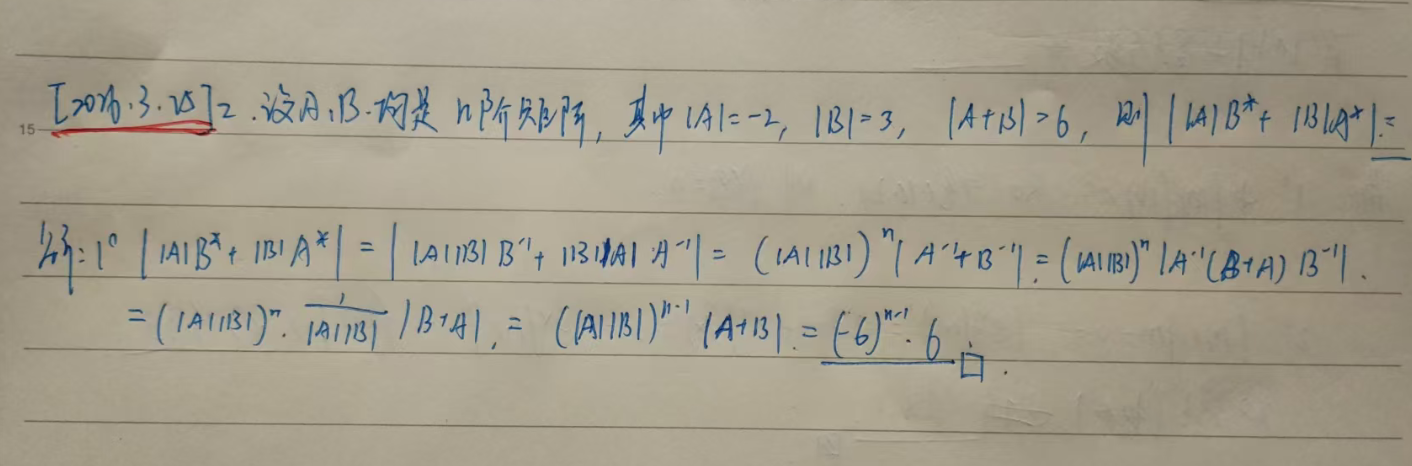 [2026.3.25] 2. 设A,B.均是 n阶矩阵, 其中 |A|=-2, |B|=3, |A+B|=6, 则 ||A|B*+ |B|A*|=
15
解: 1° ||A|B*+ |B|A*| = ||A||B| B⁻¹+ |B||A| A⁻¹| = (|A||B|)ⁿ |A⁻¹+B⁻¹| = (|A||B|)ⁿ |A⁻¹(B+A) B⁻¹|.
= (|A||B|)ⁿ · 1/(|A||B|) |B+A|. = (|A||B|)ⁿ⁻¹ |A+B|. = (-6)ⁿ⁻¹ · 6 □.